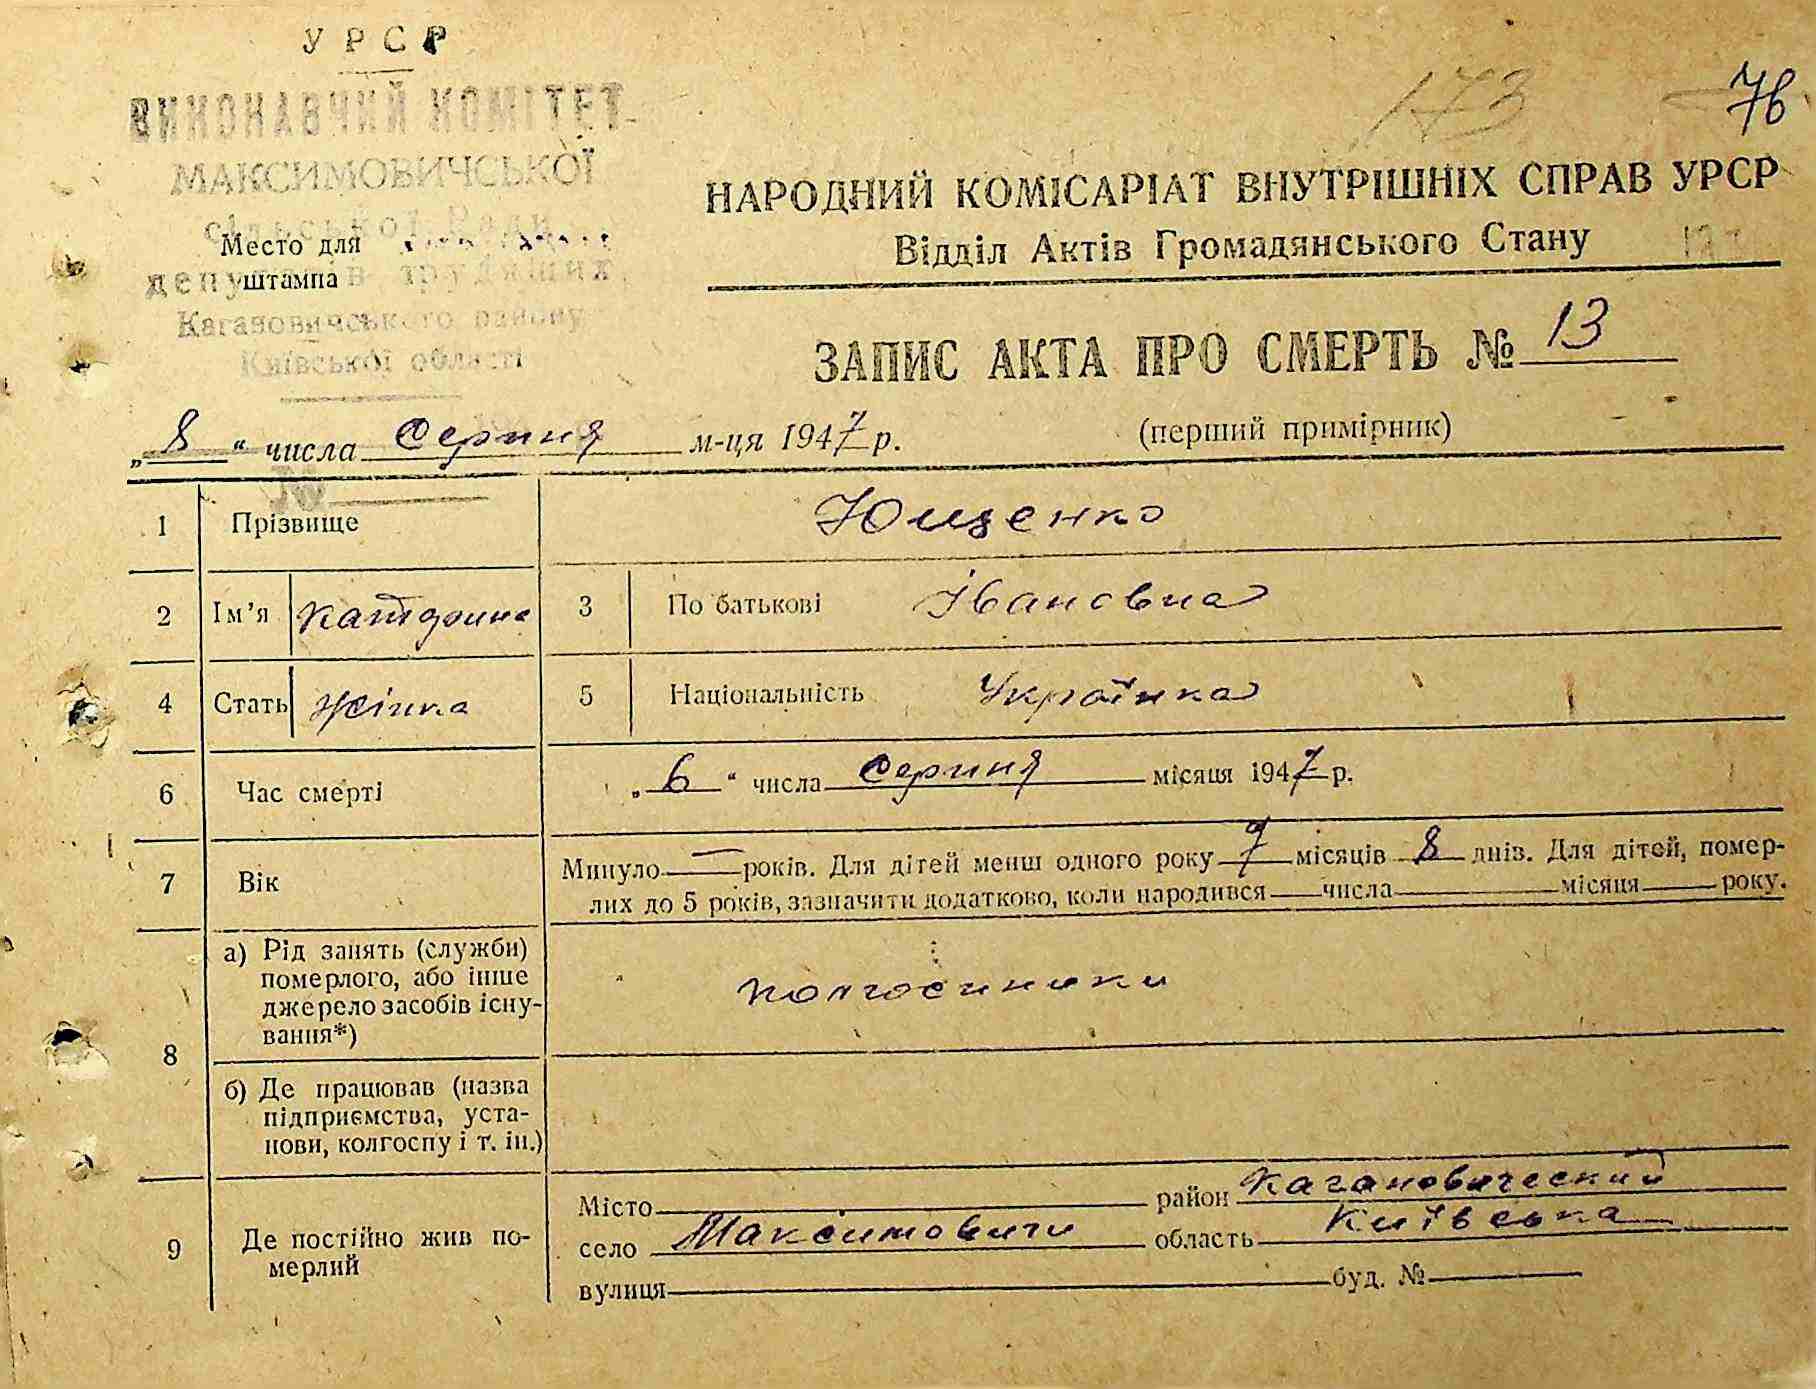 УРСР
ВИКОНАВЧИЙ КОМІТЕТ
МАКСИМОВИЧСЬКОЇ
сільської Ради
депутатів трудящих
Кагановичського району
Київської області
Место для
штампа
173
76
НАРОДНИЙ КОМІСАРІАТ ВНУТРІШНІХ СПРАВ УРСР
Відділ Актів Громадянського Стану
ЗАПИС АКТА ПРО СМЕРТЬ № 13
„8“ числа Серпня м-ця 1947 р. (перший примірник)
№
1 Прізвище Ющенко
2 Ім’я Катерина 3 По батькові Івановна
4 Стать Жінка 5 Національність Українка
6 Час смерті „6“ числа Серпня місяця 1947 р.
7 Вік Минуло — років. Для дітей менш одного року 7 місяців 8 днів. Для дітей, помер-
лих до 5 років, зазначити додатково, коли народився числа місяця року.
8 а) Рід занять (служби)
померлого, або інше
джерело засобів існу-
вання*)
колгосп
б) Де працював (назва
підприємства, уста-
нови, колгоспу і т. ін.)
9 Де постійно жив по-
мерлий
Місто район Кагановический
село Максимовичи область Київська
вулиця буд. №